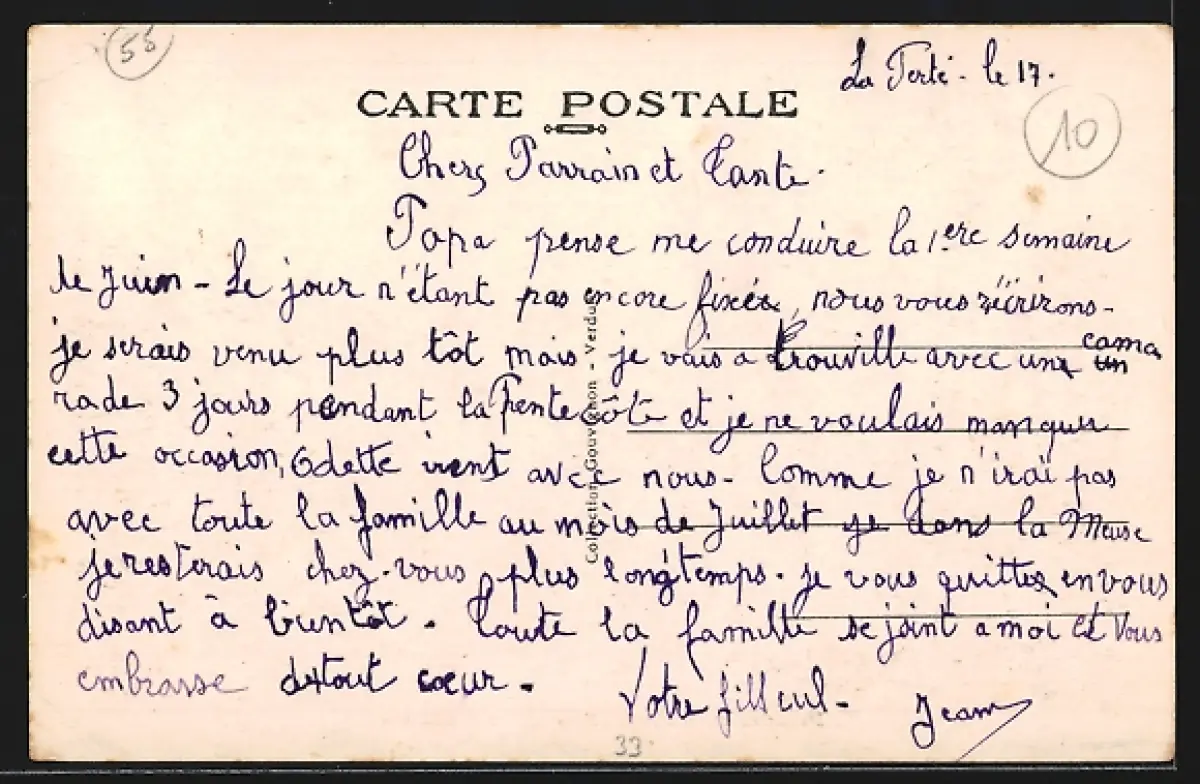 55
La Ferté - le 17.
CARTE POSTALE
10
Chers Parrain et Tante.
Papa pense me conduire la 1ere semaine
de Juin - Le jour n'étant pas encore fixée, nous vous
je serais venu plus tôt mais je vais a trouville avec une un cama
rade 3 jours pendant la Pentecôte et je ne voulais manquer
cette occasion, Odette vient avec nous - Comme je n'irai pas
avec toute la famille au mois de Juillet je dans la Meuse
je resterais chez-vous plus longtemps. je vous quittes en vous
disant à bientôt. Toute la famille se joint a moi et vous
embrasse de tout cœur.
Votre filleul - Jean
Collection Gouvignon - Verdun
33